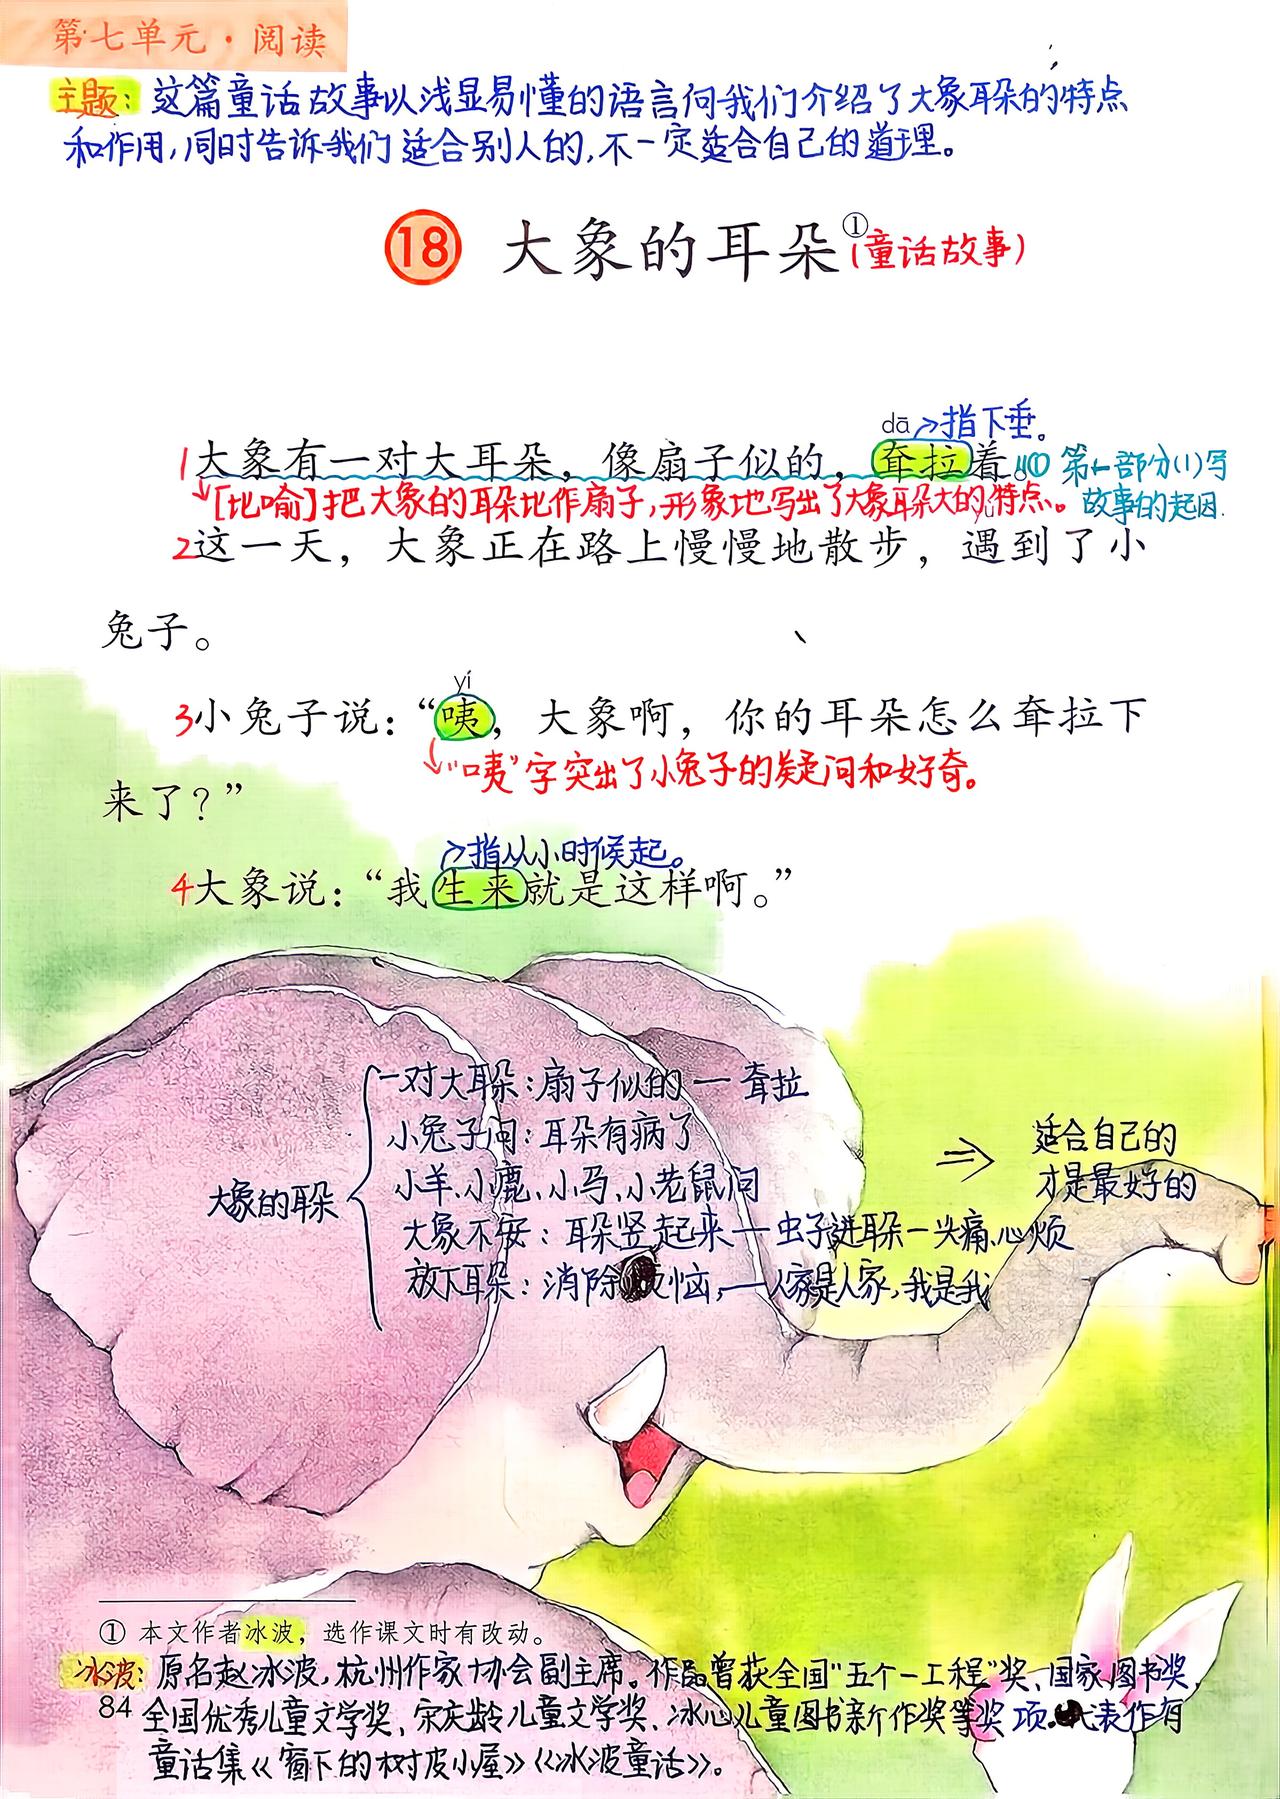 第七单元·阅读
主题：这篇童话故事以浅显易懂的语言向我们介绍了大象耳朵的特点
和作用，同时告诉我们适合别人的，不一定适合自己的道理。
18 大象的耳朵①（童话故事）
dā →指下垂。
1大象有一对大耳朵，像扇子似的，耷拉着。① 第一部分(1)写
故事的起因.
[比喻]把大象的耳朵比作扇子，形象地写出了大象耳朵大的特点。
yù
2这一天，大象正在路上慢慢地散步，遇到了小
兔子。
yí
3小兔子说：“咦，大象啊，你的耳朵怎么耷拉下
“咦”字突出了小兔子的疑问和好奇。
来了？”
指从小时候起。
4大象说：“我生来就是这样啊。”
一对大耳朵：扇子似的 — 耷拉
小兔子问：耳朵有病了
小羊、小鹿、小马、小老鼠问
大象的耳朵
大象不安：耳朵竖起来—虫子进耳朵—头痛、心烦
放下耳朵：消除烦恼，—人家是人家，我是我
⇒ 适合自己的
才是最好的
① 本文作者冰波，选作课文时有改动。
冰波：原名赵冰波，杭州作家协会副主席。作品曾获全国“五个一工程”奖、国家图书奖、
84 全国优秀儿童文学奖、宋庆龄儿童文学奖、冰心儿童图书新作奖等奖项。代表作有
童话集《窗下的树皮小屋》《冰波童话》。